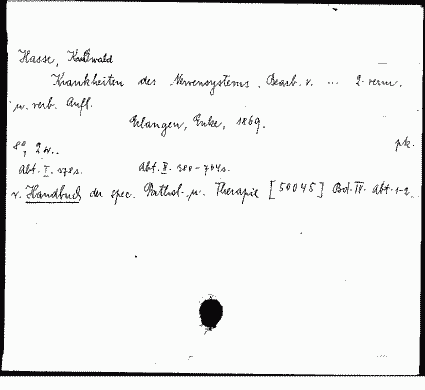 Hasse, Karl Ewald
Krankheiten des Nervensystems. Bearb. v. ... 2. verm.
u. verb. Aufl.
Erlangen, Enke, 1869.
8°, 2 w.. pk.
Abt. I. 378 s. Abt. II. 380-704 s.
v. Handbuch der spec. Pathol. u. Therapie [50045] Bd. IV. Abt. 1-2.